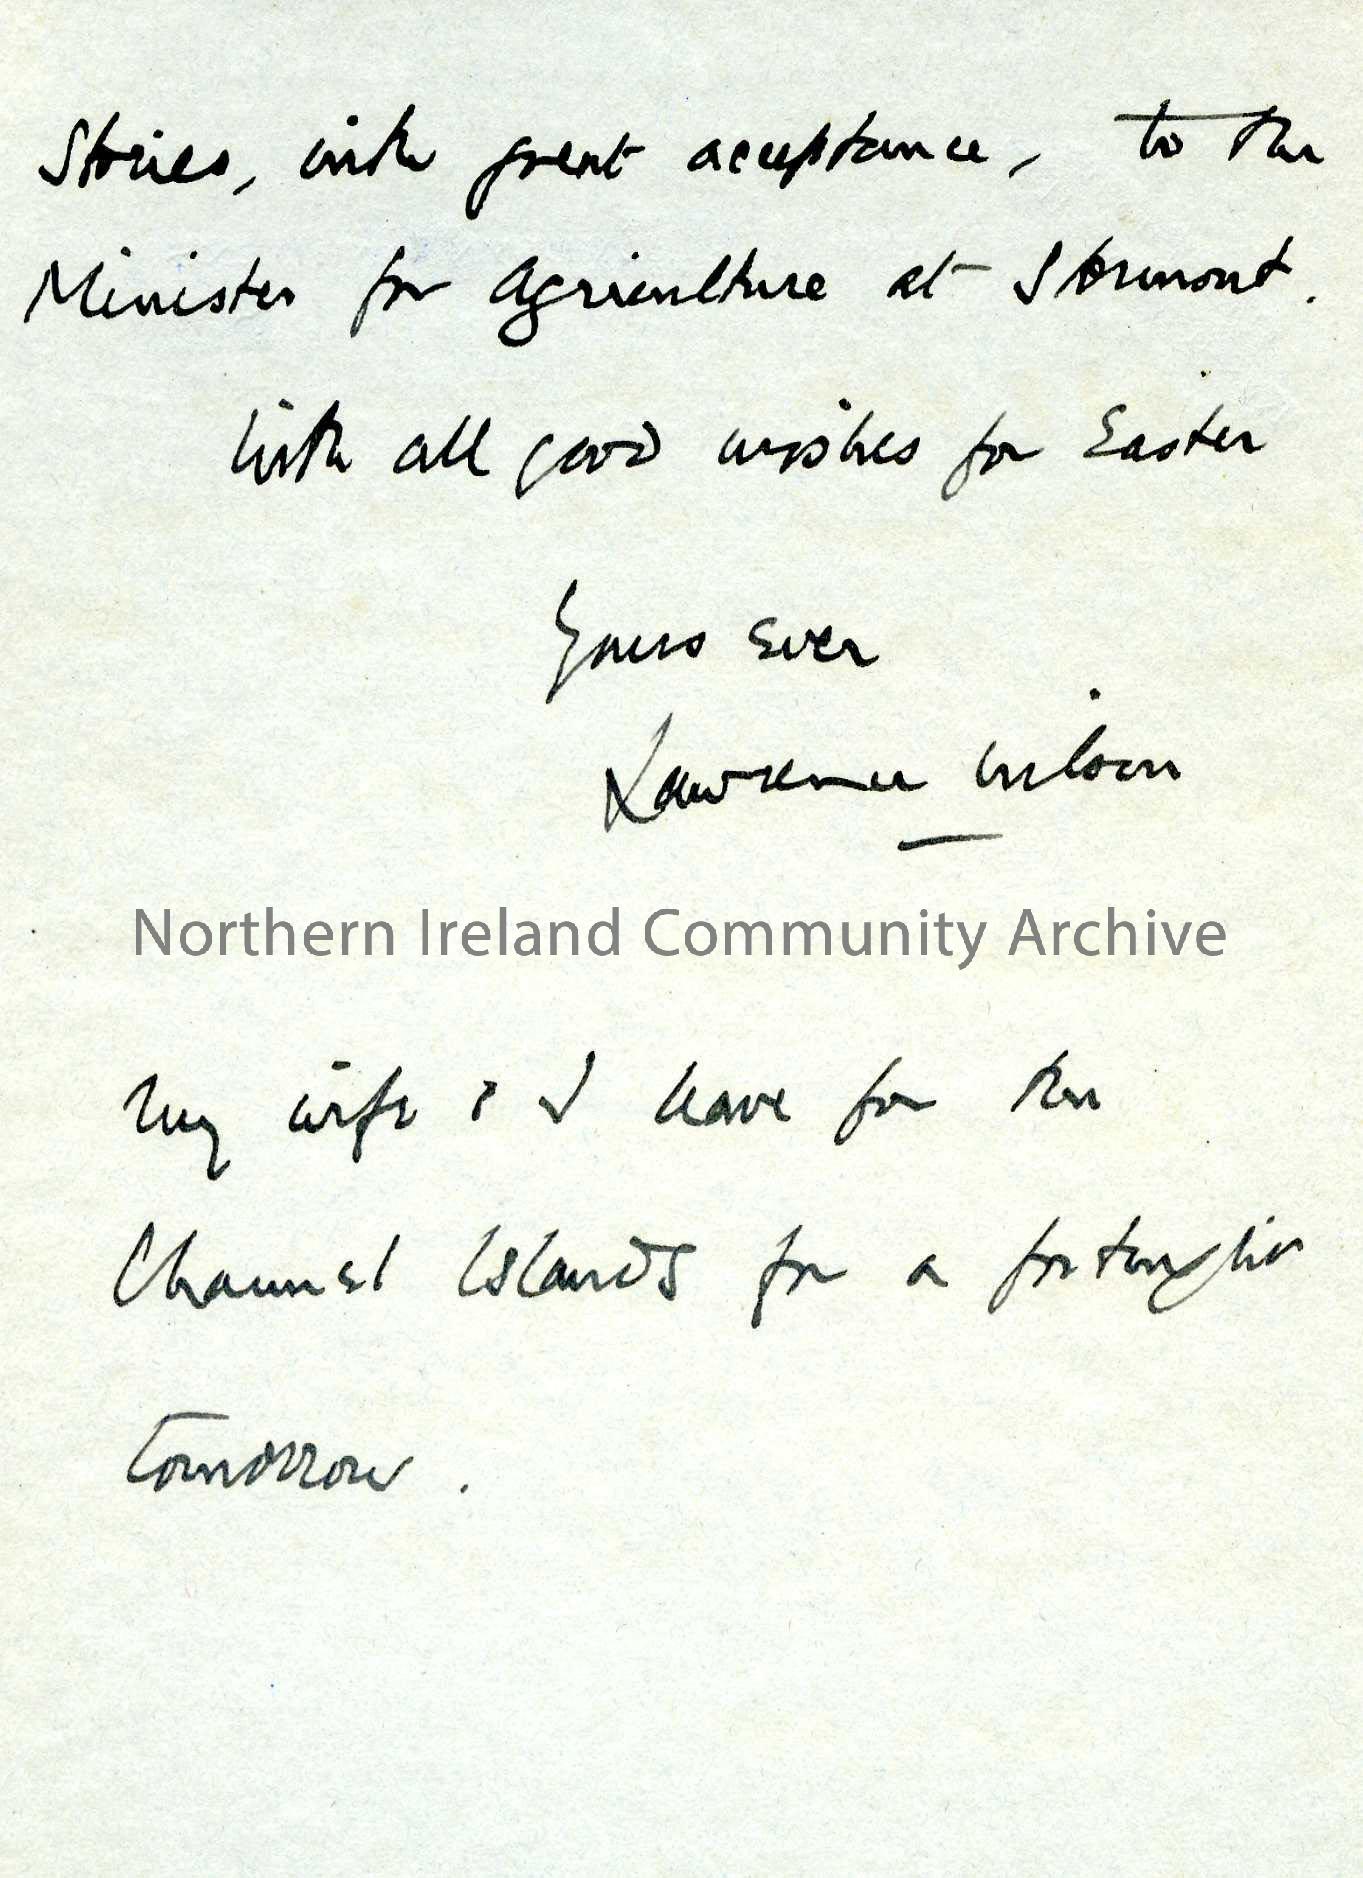 Stories, with great acceptance, to the
Minister for Agriculture at Stormont.
With all good wishes for Easter
Yours Ever
Lawrence Wilson
Northern Ireland Community Archive
My wife & I leave for the
Channel Islands for a fortnight
tomorrow.